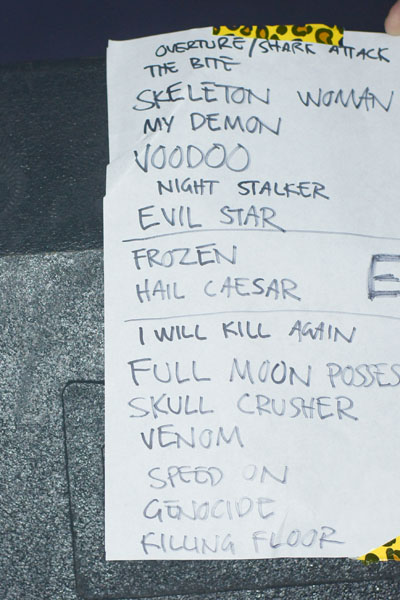 OVERTURE/SHARK ATTACK
THE BITE
SKELETON WOMAN
MY DEMON
VOODOO
NIGHT STALKER
EVIL STAR
FROZEN
HAIL CAESAR
E
I WILL KILL AGAIN
FULL MOON POSSES
SKULL CRUSHER
VENOM
SPEED ON
GENOCIDE
KILLING FLOOR